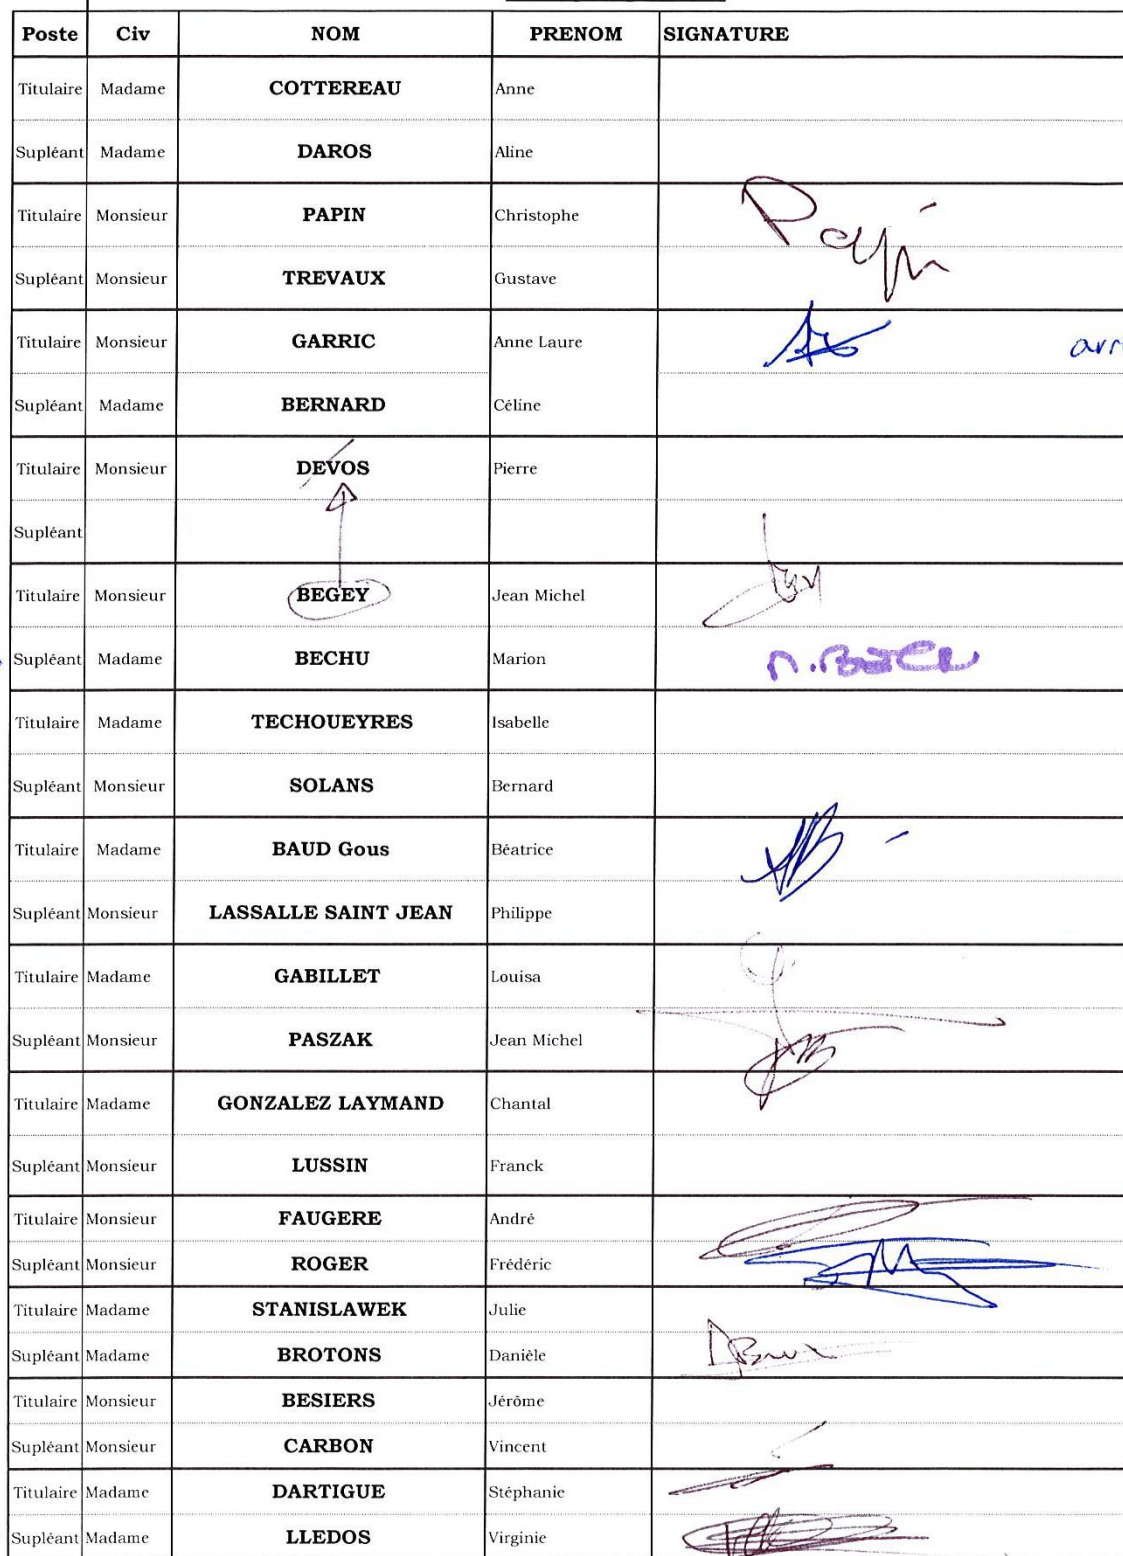 Poste Civ NOM PRENOM SIGNATURE
Titulaire Madame COTTEREAU Anne
Supléant Madame DAROS Aline
Titulaire Monsieur PAPIN Christophe Papin
Supléant Monsieur TREVAUX Gustave
Titulaire Monsieur GARRIC Anne Laure
Supléant Madame BERNARD Céline
Titulaire Monsieur DEVOS Pierre
Supléant
Titulaire Monsieur BEGEY Jean Michel
Supléant Madame BECHU Marion
Titulaire Madame TECHOUEYRES Isabelle
Supléant Monsieur SOLANS Bernard
Titulaire Madame BAUD Gous Béatrice
Supléant Monsieur LASSALLE SAINT JEAN Philippe
Titulaire Madame GABILLET Louisa
Supléant Monsieur PASZAK Jean Michel
Titulaire Madame GONZALEZ LAYMAND Chantal
Supléant Monsieur LUSSIN Franck
Titulaire Monsieur FAUGERE André
Supléant Monsieur ROGER Frédéric
Titulaire Madame STANISLAWEK Julie
Supléant Madame BROTONS Danièle
Titulaire Monsieur BESIERS Jérôme
Supléant Monsieur CARBON Vincent
Titulaire Madame DARTIGUE Stéphanie
Supléant Madame LLEDOS Virginie